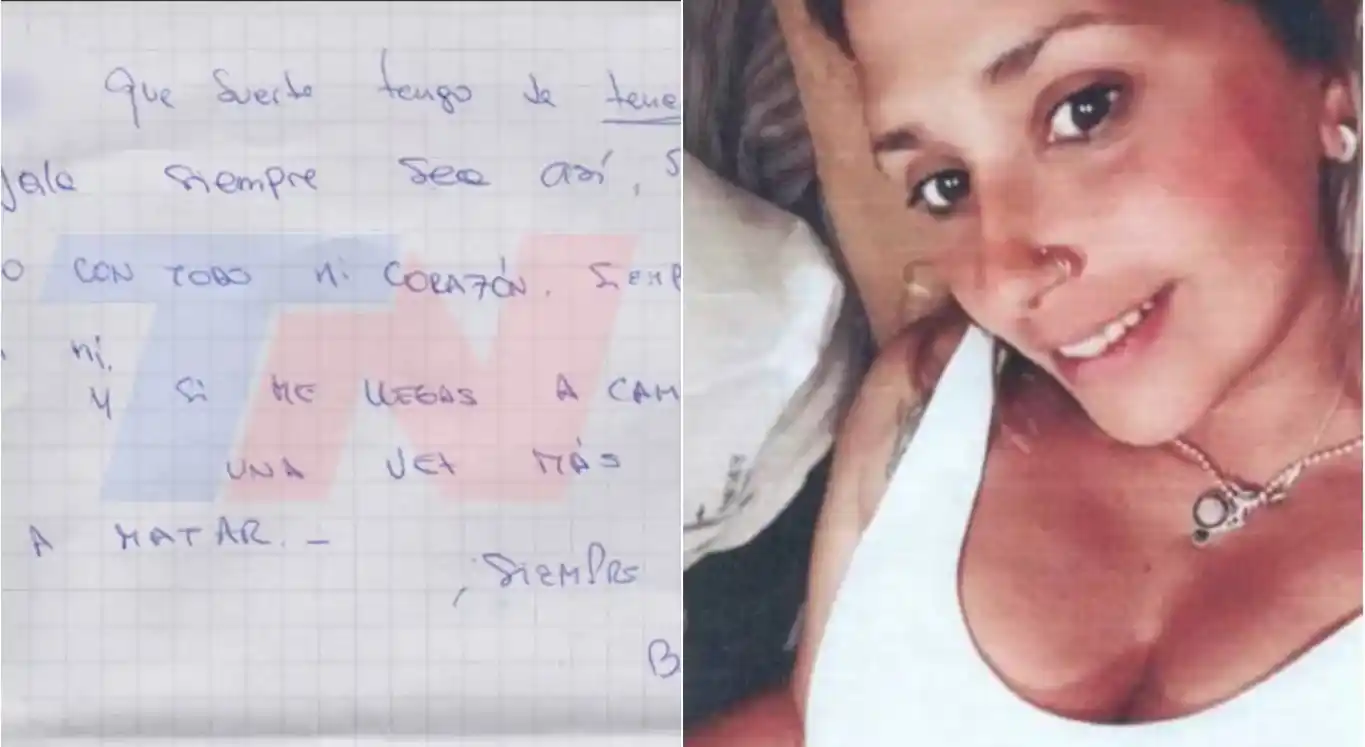 Que suerte tengo de tene
jala siempre sea así, S
O CON TODO Mi CORAZÓN. SiEMP
mi.
Y Si ME LLEGAS A CAM
UNA VEZ MÁS
A MATAR. –
, SiEMPRE
B
TN